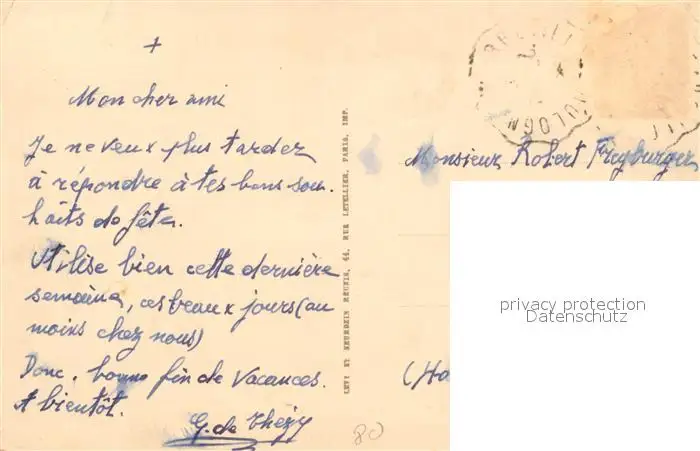 +
Mon cher ami
Je ne veux plus tarder
à répondre à tes bons sou-
haits de fête.
Utilise bien cette dernière
semaine, ces beaux jours (au
moins chez nous)
Donc, bonne fin de vacances.
A bientôt.
G. de Thézy
LEVY ET NEURDEIN RÉUNIS, 44, RUE LETELLIER, PARIS, IMP.
80
Monsieur Robert Freyburger
(Ha
privacy protection
Datenschutz